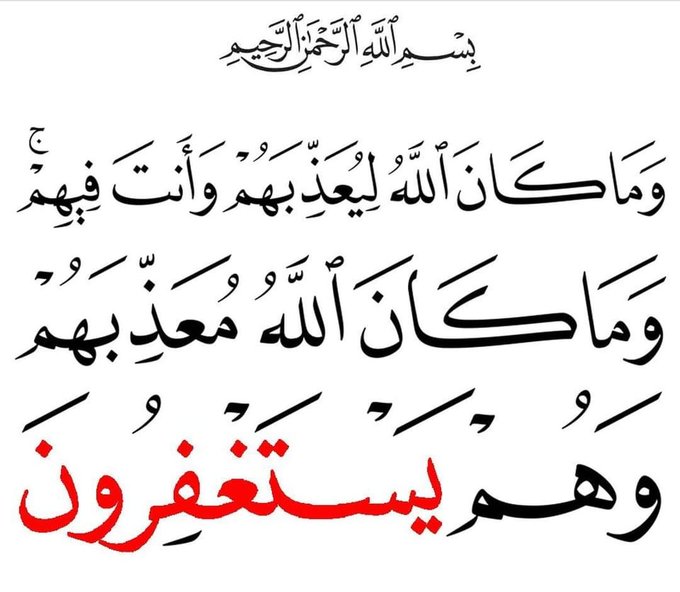 بِسْمِ ٱللَّهِ ٱلرَّحْمَٰنِ ٱلرَّحِيمِ
وَمَا كَانَ ٱللَّهُ لِيُعَذِّبَهُمْ وَأَنتَ فِيهِمْۚ
وَمَا كَانَ ٱللَّهُ مُعَذِّبَهُمْ
وَهُمْ يَسْتَغْفِرُونَ